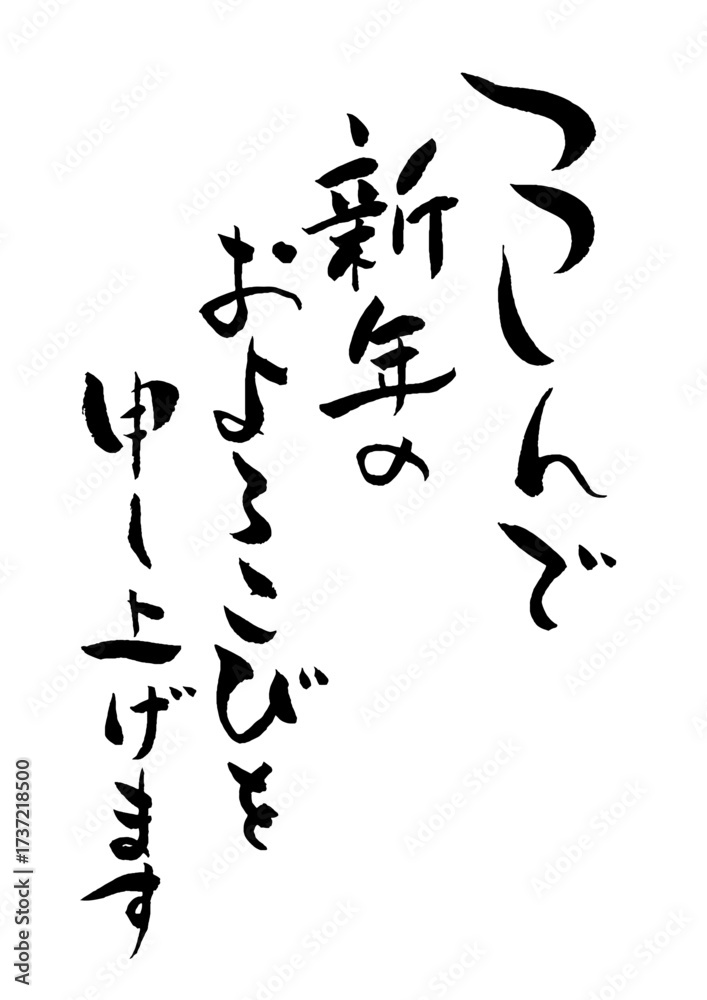 つつしんで
新年の
およろこびを
申し上げます
Adobe Stock | #1737218500